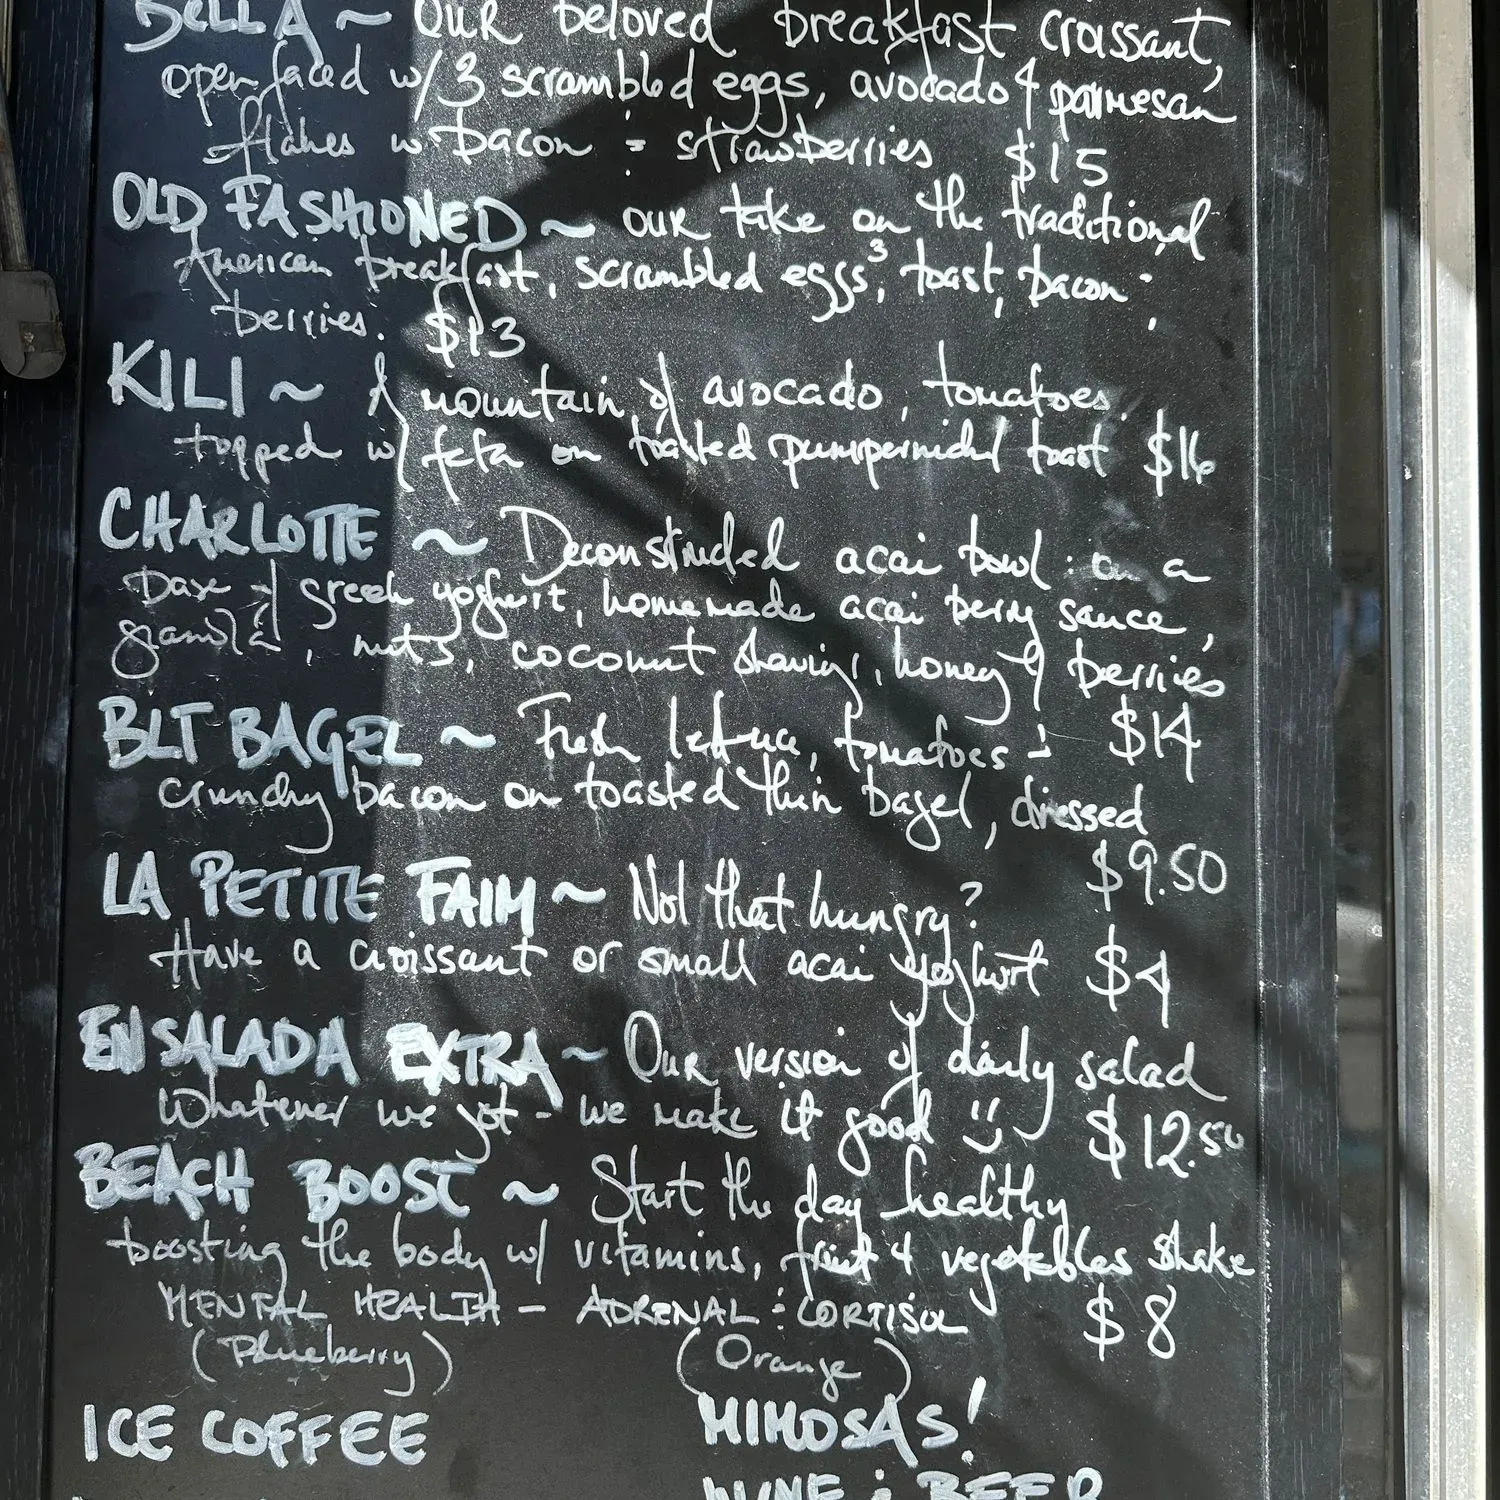 BELLA ~ Our beloved breakfast croissant,
open faced w/ 3 scrambled eggs, avocado & parmesan
flakes w. bacon & strawberries $15
OLD FASHIONED ~ our take on the traditional
American breakfast, scrambled eggs³, toast, bacon &
berries. $13
KILI ~ A mountain of avocado, tomatoes.
topped w/ feta on toasted pumpernickel toast $16
CHARLOTTE ~ Deconstructed acai bowl: on a
base of greek yoghurt, homemade acai berry sauce,
granola, nuts, coconut shavings, honey & berries
$14
BLT BAGEL ~ Fresh lettuce, tomatoes &
crunchy bacon on toasted thin bagel, dressed
$9.50
LA PETITE FAIM ~ Not that hungry?
Have a croissant or small acai yoghurt $4
ENSALADA EXTRA ~ Our version of daily salad
Whatever we got - we make it good :) $12.50
BEACH BOOST ~ Start the day healthy
boosting the body w/ vitamins, fruit & vegetables shake
MENTAL HEALTH - ADRENAL & CORTISOL $8
(Blueberry) (Orange)
ICE COFFEE MIMOSAS!
WINE & BEER